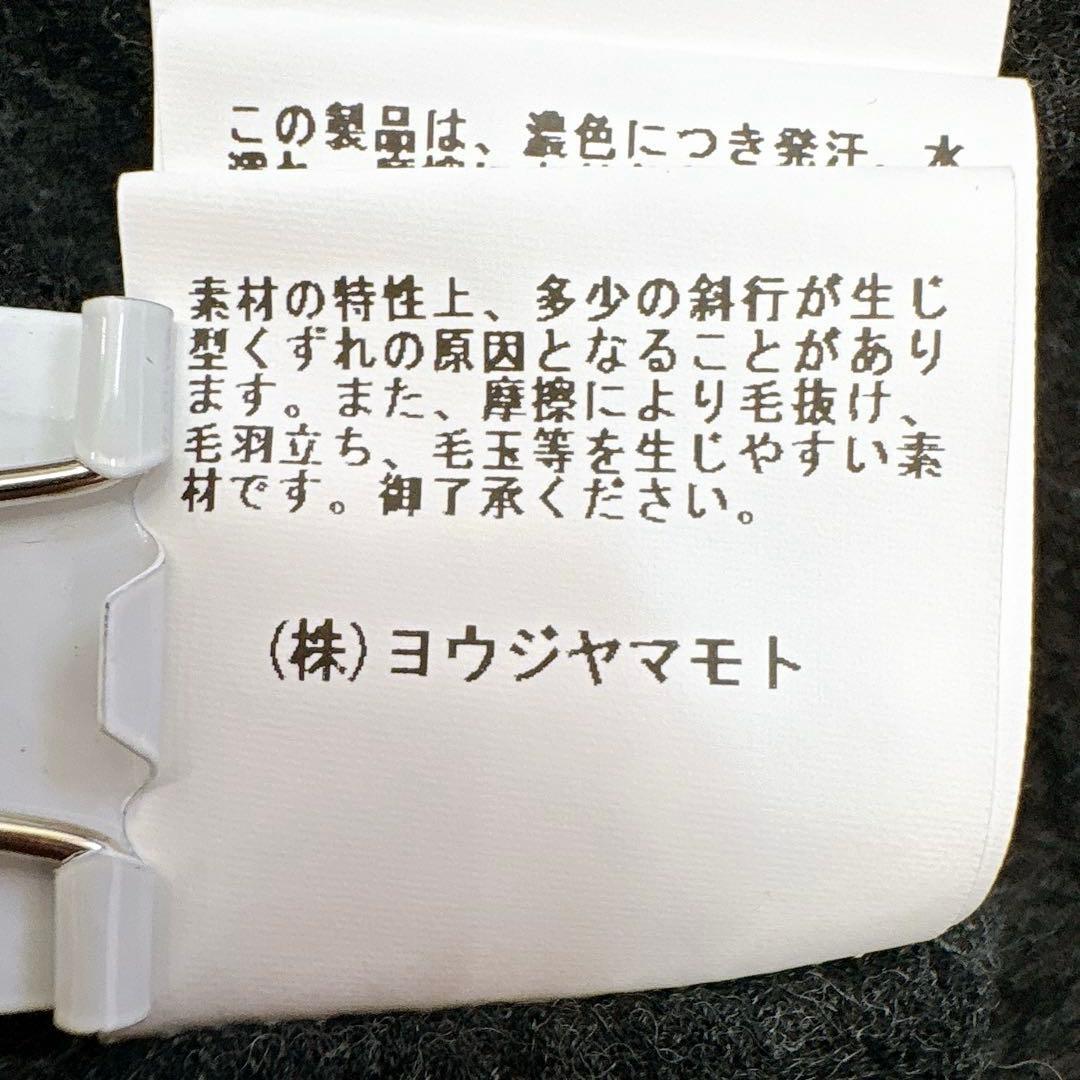 この製品は、濃色につき発汗、水
素材の特性上、多少の斜行が生じ
型くずれの原因となることがあり
ます。また、摩擦により毛抜け、
毛羽立ち、毛玉等を生じやすい素
材です。御了承ください。
(株)ヨウジヤマモト